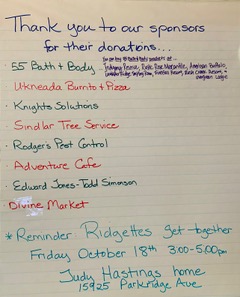 Thank you to our sponsors
for their donations...
55 Bath + Body
Ukneada Burrito + Pizza
· Knights Solutions
· Sindlar Tree Service
· Rodger's Pest Control
· Adventure Cafe
· Edward Jones-Todd Simonson
Divine Market
* Reminder Ridgettes get together
Friday October 18th 3:00-5:00pm
Judy Hastings home
15925 Parkridge Ave